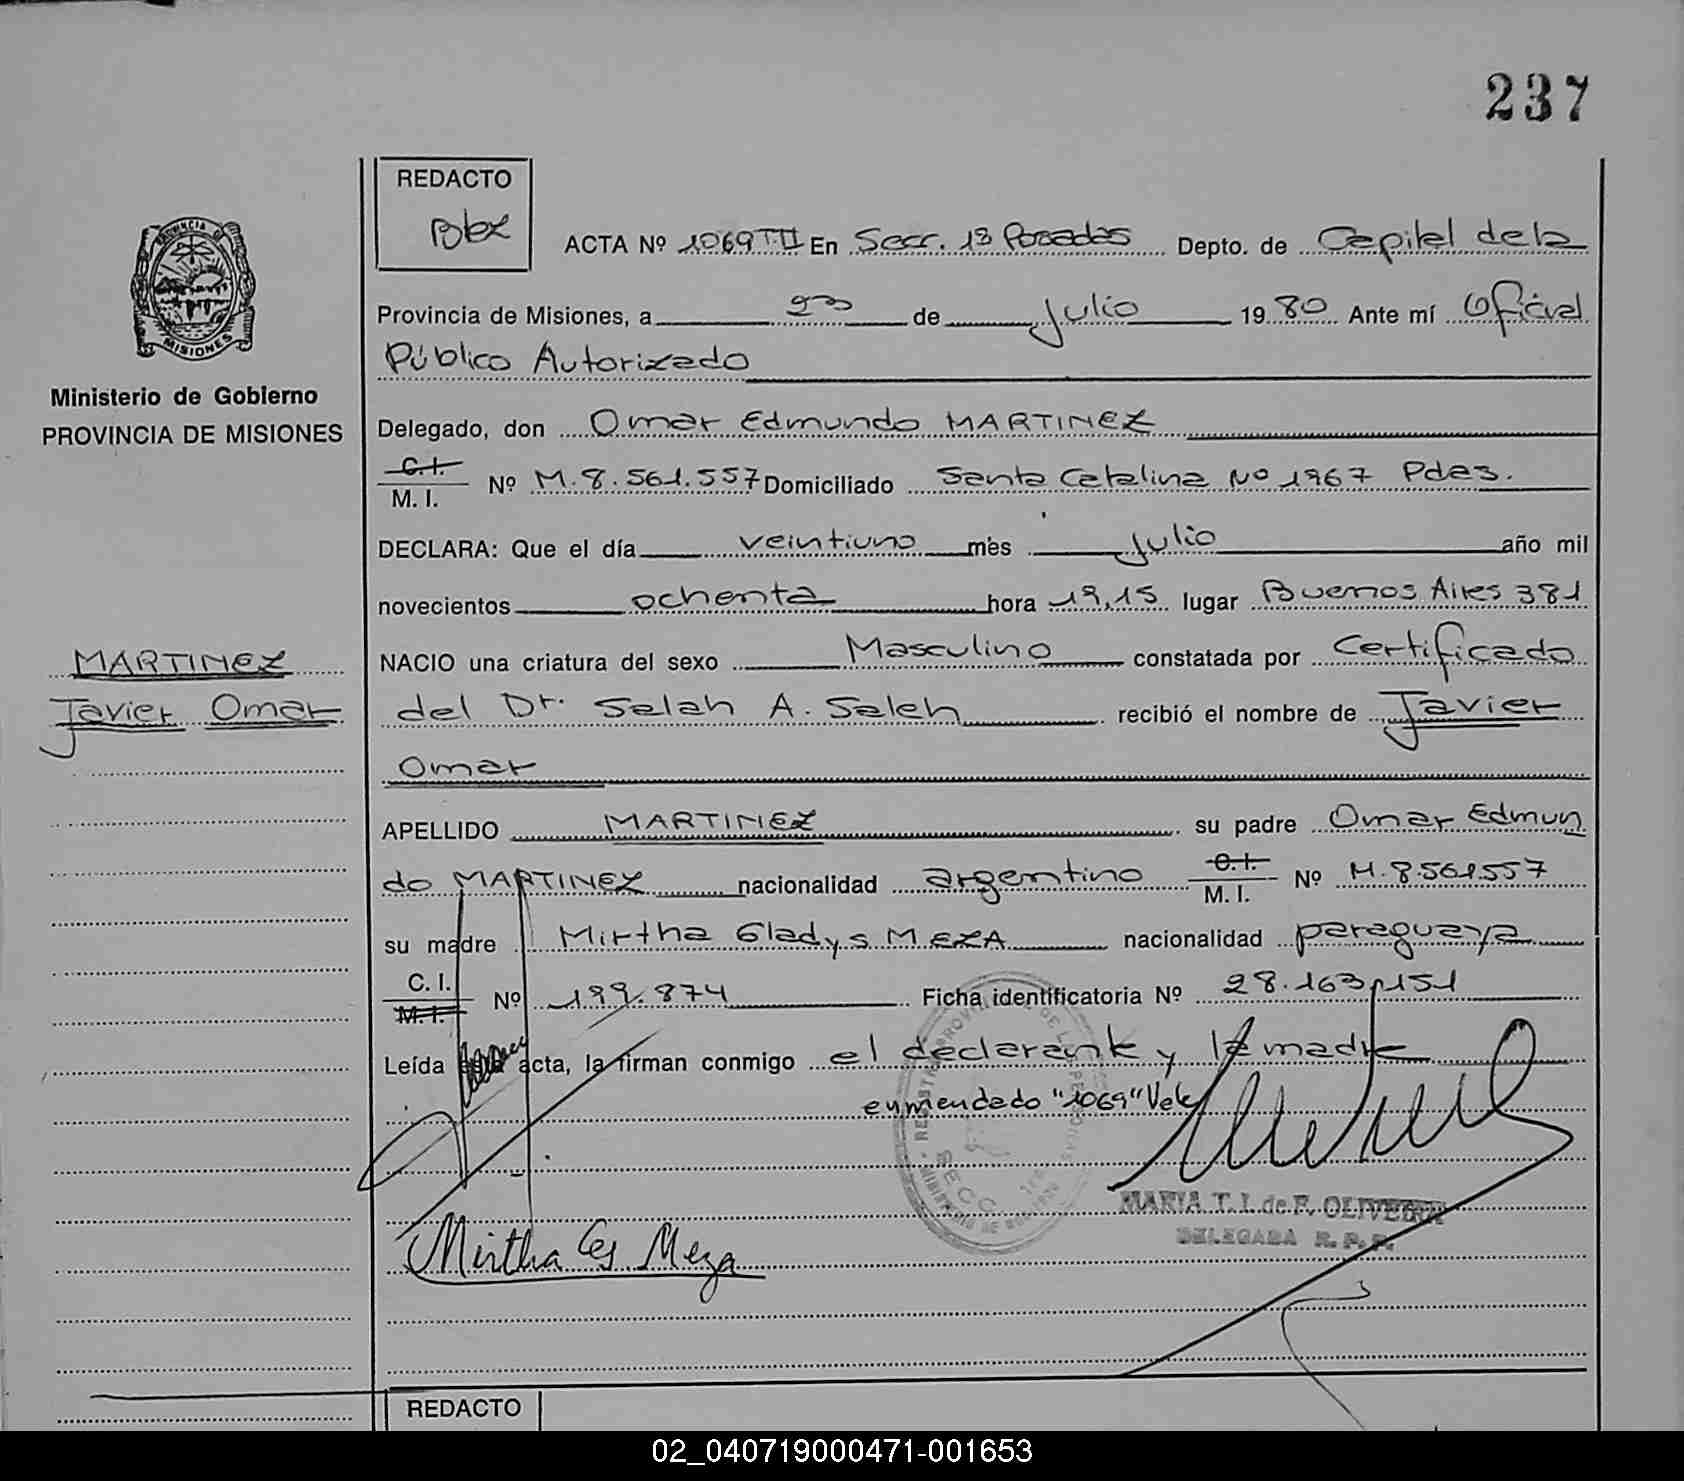 237
REDACTO
ACTA Nº 1069 T.II En Secc. 1ª Posadas Depto. de Capital de la
Provincia de Misiones, a 23 de Julio 1980 Ante mí Oficial
Público Autorizado
Ministerio de Gobierno
PROVINCIA DE MISIONES
Delegado, don Omar Edmundo MARTINEZ
C.I.
M. I. Nº M.8.561.557 Domiciliado Santa Catalina Nº 1967 Pdas.
DECLARA: Que el día veintiuno mes Julio año mil
novecientos ochenta hora 19,15 lugar Buenos Aires 381
MARTINEZ
Javier Omar
NACIO una criatura del sexo Masculino constatada por Certificado
del Dr. Salah A. Saleh recibió el nombre de Javier
Omar
APELLIDO MARTINEZ su padre Omar Edmun
do MARTINEZ nacionalidad argentino C.I. M. I. Nº M.8.561.557
su madre Mirtha Gladys MEZA nacionalidad paraguaya
C. I.
M. I. Nº 199.874 Ficha identificatoria Nº 28.163.151
Leída acta, la firman conmigo el declarante y la madre
enmendado "1069" Vale
MARIA T. I. de F. OLIVEIRA
DELEGADA R. P. P.
Mirtha Gs Meza
REDACTO
02_040719000471-001653